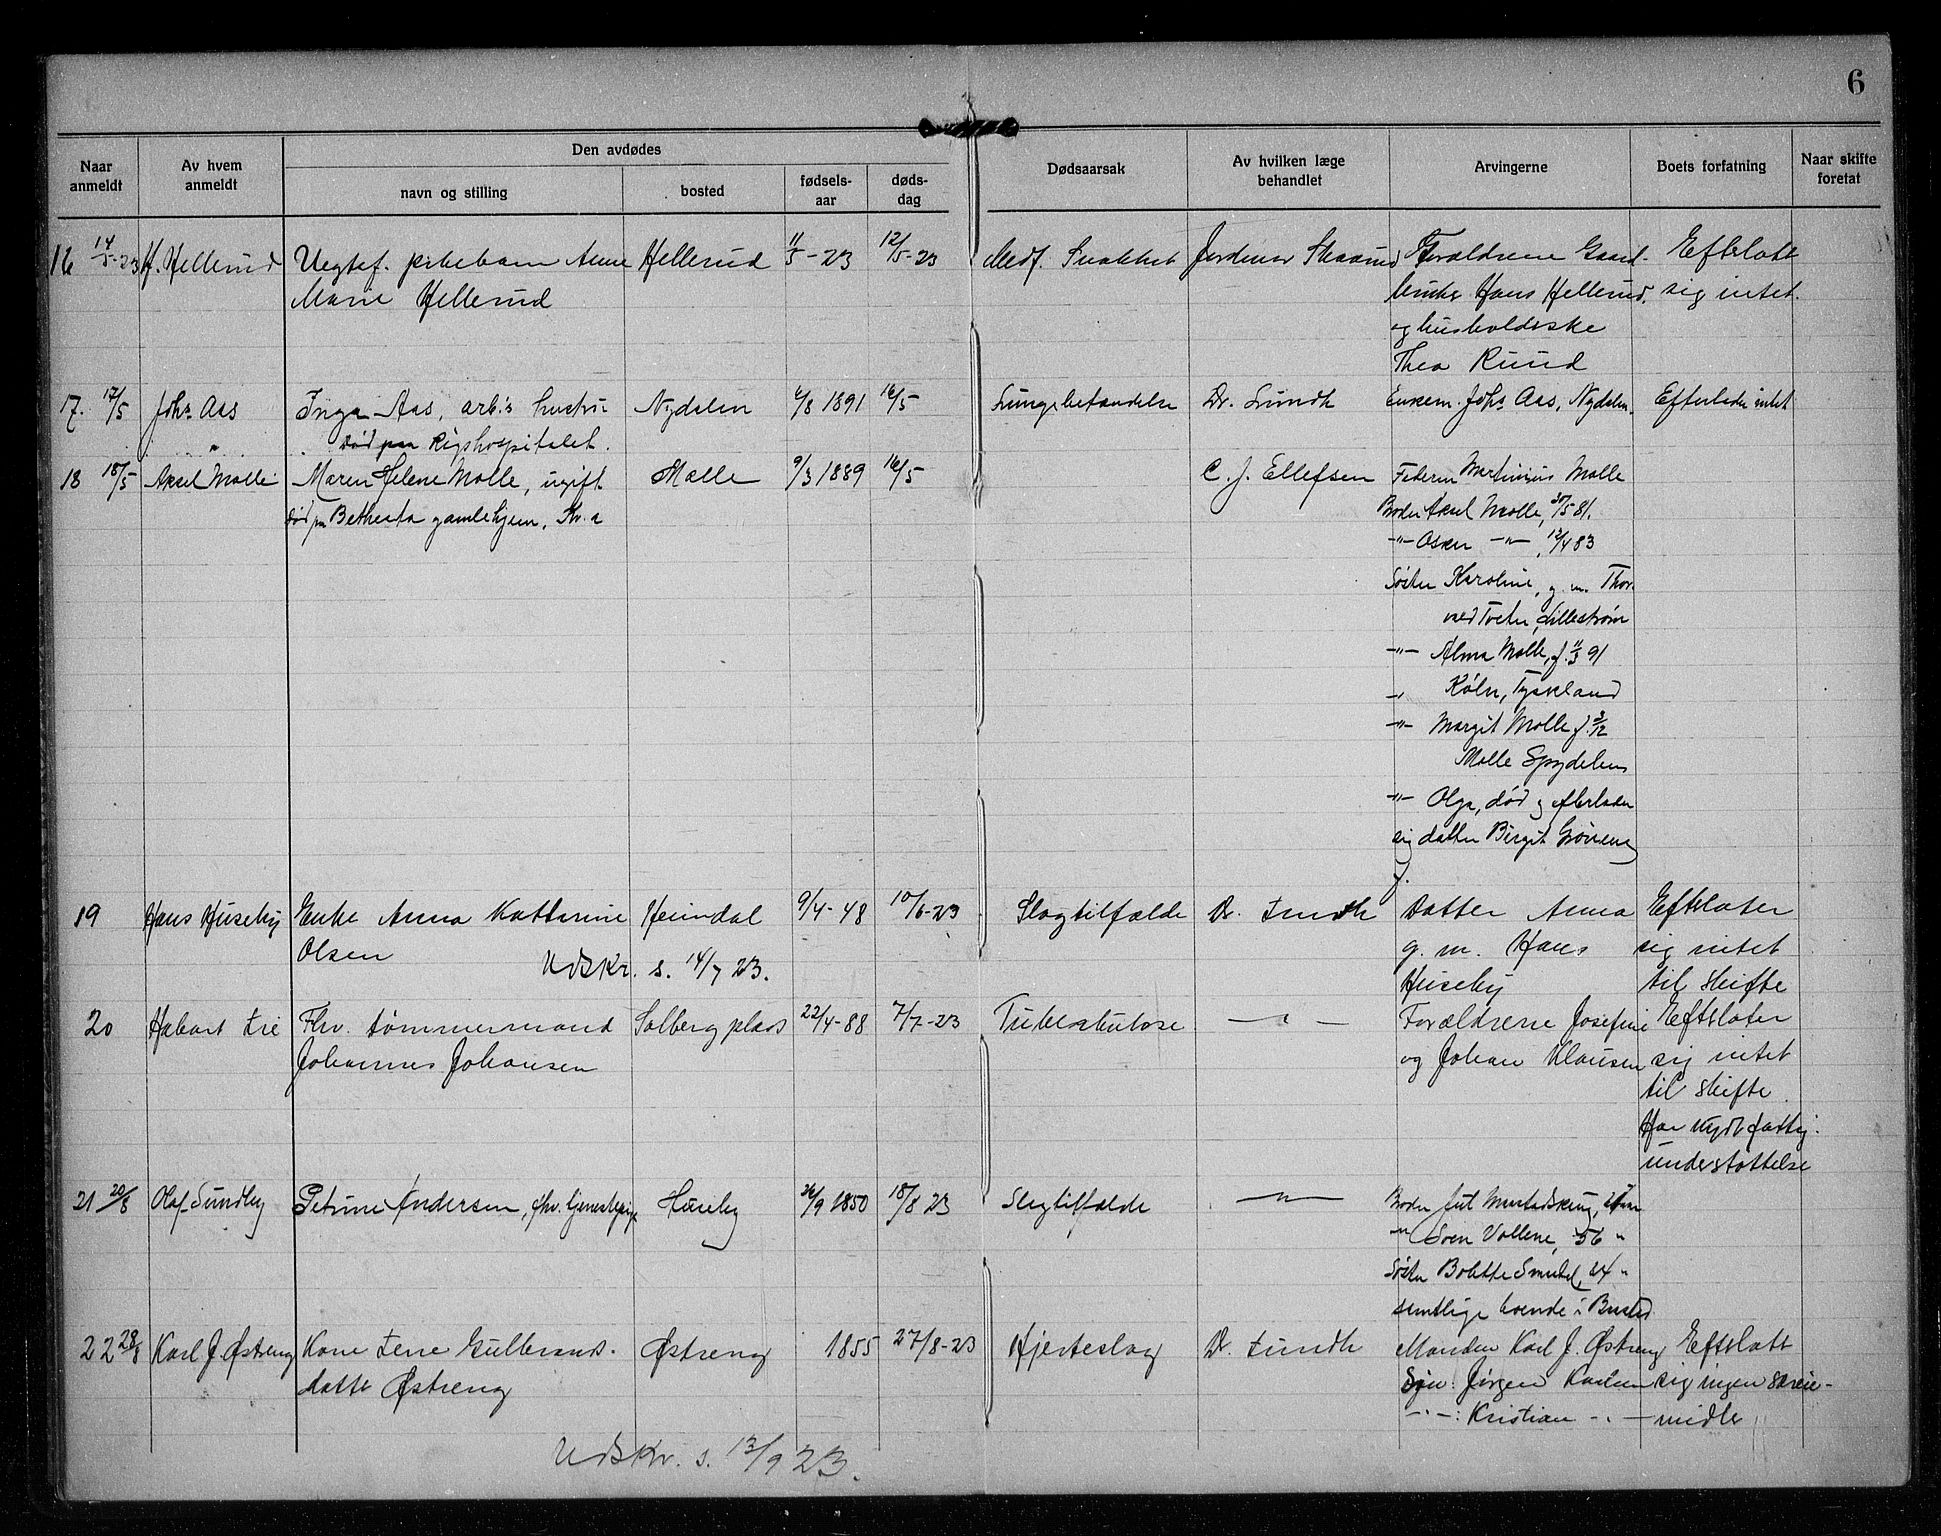 6
Naar anmeldt
Av hvem anmeldt
Den avdødes
navn og stilling
bosted
fødsels-aar
døds-dag
Dødsaarsak
Av hvilken læge behandlet
Arvingerne
Boets forfatning
Naar skifte foretat
16 14/5-23 H. Hellerud Uegtef. pikebarn Anne Hellerud 11/5-23 12/5-23 Medf. Svakhet Jordmor Forældrene Gaard- Efterlatt
Marie Hellerud bruker Hans Hellerud sig intet.
og husholderske
Thea Ruud
17. 17/5 Johs. Aas Inga Aas, arb.s hustru Nydalen 6/8 1891 16/5 Lungebetændelse Dr. Lundh Enkem. Johs Aas, Nydalen. Efterlader intet
" død paa Rigshospitalet.
18 18/5 Aksel Molle Maren Helene Molle, ugift Molle 9/3 1889 16/5 C. J. Ellefsen Faderen Martinius Molle
død paa Bethesda gamlehjem, Kr.a Broder Aksel Molle, 30/5 81.
-"- Oskar -"-, 12/4 83
Søster Karoline, g. m. Thor-
vald Toeter, Lillestrøm
-"- Alma Molle, f. 11/3 91
Køln, Tyskland
-"- Margit Molle f. 3/12
Molle Spydeberg
-"- Olga, død og efterlader
sig datter Birgit
19 Hans Huseby Enke Anna Kathrine Heimdal 9/4-48 10/6-23 Slagtilfælde Dr. Lundh Datter Anna Efterlater
Olsen g. m. Hans sig intet
Udskr. s. 14/7 23. Huseby til skifte
20 Habart Lie Fhv. tømmermand Solberg plads 22/4-88 7/7-23 Tuberkulose -"- Forældrene Josefine Efterlater
Johannes Johansen og Johan Klausen sig intet
til skifte.
Har nydt fattig-
understøttelse
21 20/8 Olaf Sundby Petrine Andersen, fhv. tjenestepige Huseby 26/9 1850 18/8 23 Slagtilfælde -"- Broder Jul
-"- Sven Vollene, 56 "
Søster Bolette 24 "
samtlige boende i
22 28/8 Karl J. Østreng Kone Lene Gulbrands- Østreng 1855 27/8-23 Hjerteslag Dr. Lundh Manden Karl J. Østreng Efterlatt
datter Østreng Søn: Jørgen Karlsen sig ingen særeie-
-"-: Kristian -"- midler
Udskr. s. 13/9 23.